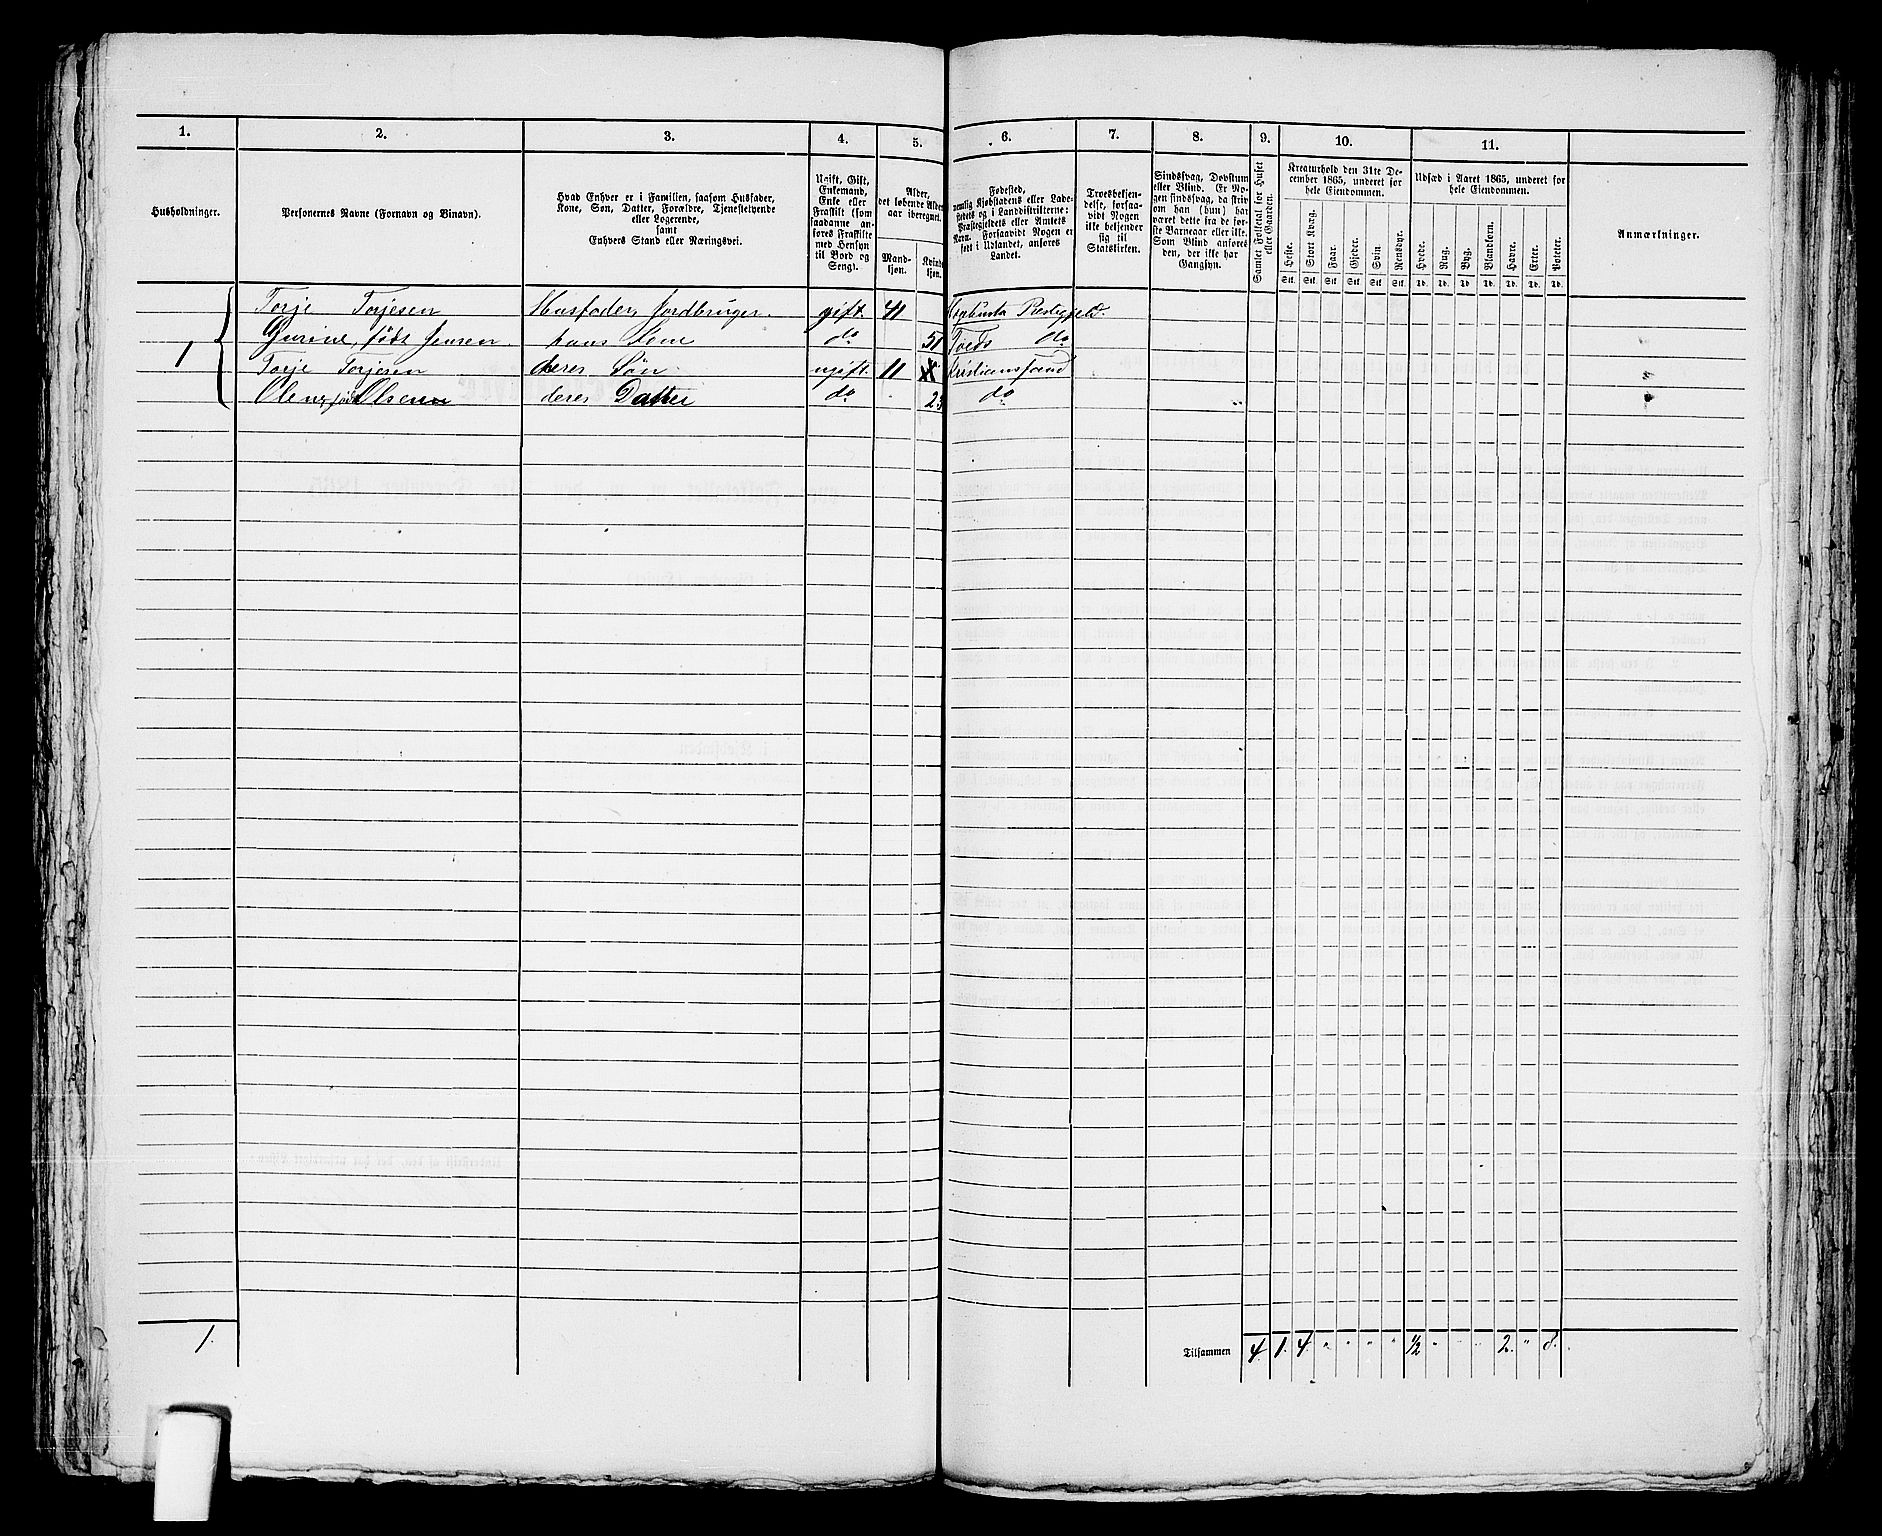 1. 2. 3. 4. 5. 6. 7. 8. 9. 10. 11.
Husholdninger.
Personernes Navne (Fornavn og Binavn).
Hvad Enhver er i Familien, saasom Husfader, Kone, Søn, Datter, Forældre, Tjenestetyende eller Logerende, samt Enhvers Stand eller Næringsvei.
Ugift, Gift, Enkemand, Enke eller Fraskilt (som saadanne anføres Fraskilte med Hensyn til Bord og Seng).
Alder, det løbende Alders- aar iberegnet.
Mandkjøn.
Kvindekjøn.
Fødested, nemlig Kjøbstadens eller Ladestedets og i Landdistrikterne: Præstegjeldets eller Amtets Navn. Forsaavidt Nogen er født i Udlandet, anføres Landet.
Troesbekjendelse, forsaavidt Nogen ikke bekjender sig til Statskirken.
Sindssvag, Døvstum eller Blind. Er Nogen sindssvag, da skriv om han (hun) har været dette fra de første Barneaar eller ikke. Som Blind anføres den, der ikke har Gangsyn.
Samlet Folketal for Huset eller Gaarden.
Kreaturhold den 31te December 1865, underet for hele Eiendommen.
Heste. Stort Kvæg. Faar. Gjeder. Svin. Rensdyr.
Stk. Stk. Stk. Stk. Stk. Stk.
Udsæd i Aaret 1865, underet for hele Eiendommen.
Hvede. Rug. Byg. Blandkorn. Havre. Erter. Poteter.
Td. Td. Td. Td. Td. Td. Td.
Anmærkninger.
1 Torje Torjesen Husfader, Jordbruger. gift. 41
Gurine, født Jensen hans Kone do 51 do
Torje Torjesen deres Søn ugift. 11 Kristianssand
Olsen deres Datter do do
1. Tilsammen 4. 1. 4. " " " " 1/2 " " " 2. " 8.